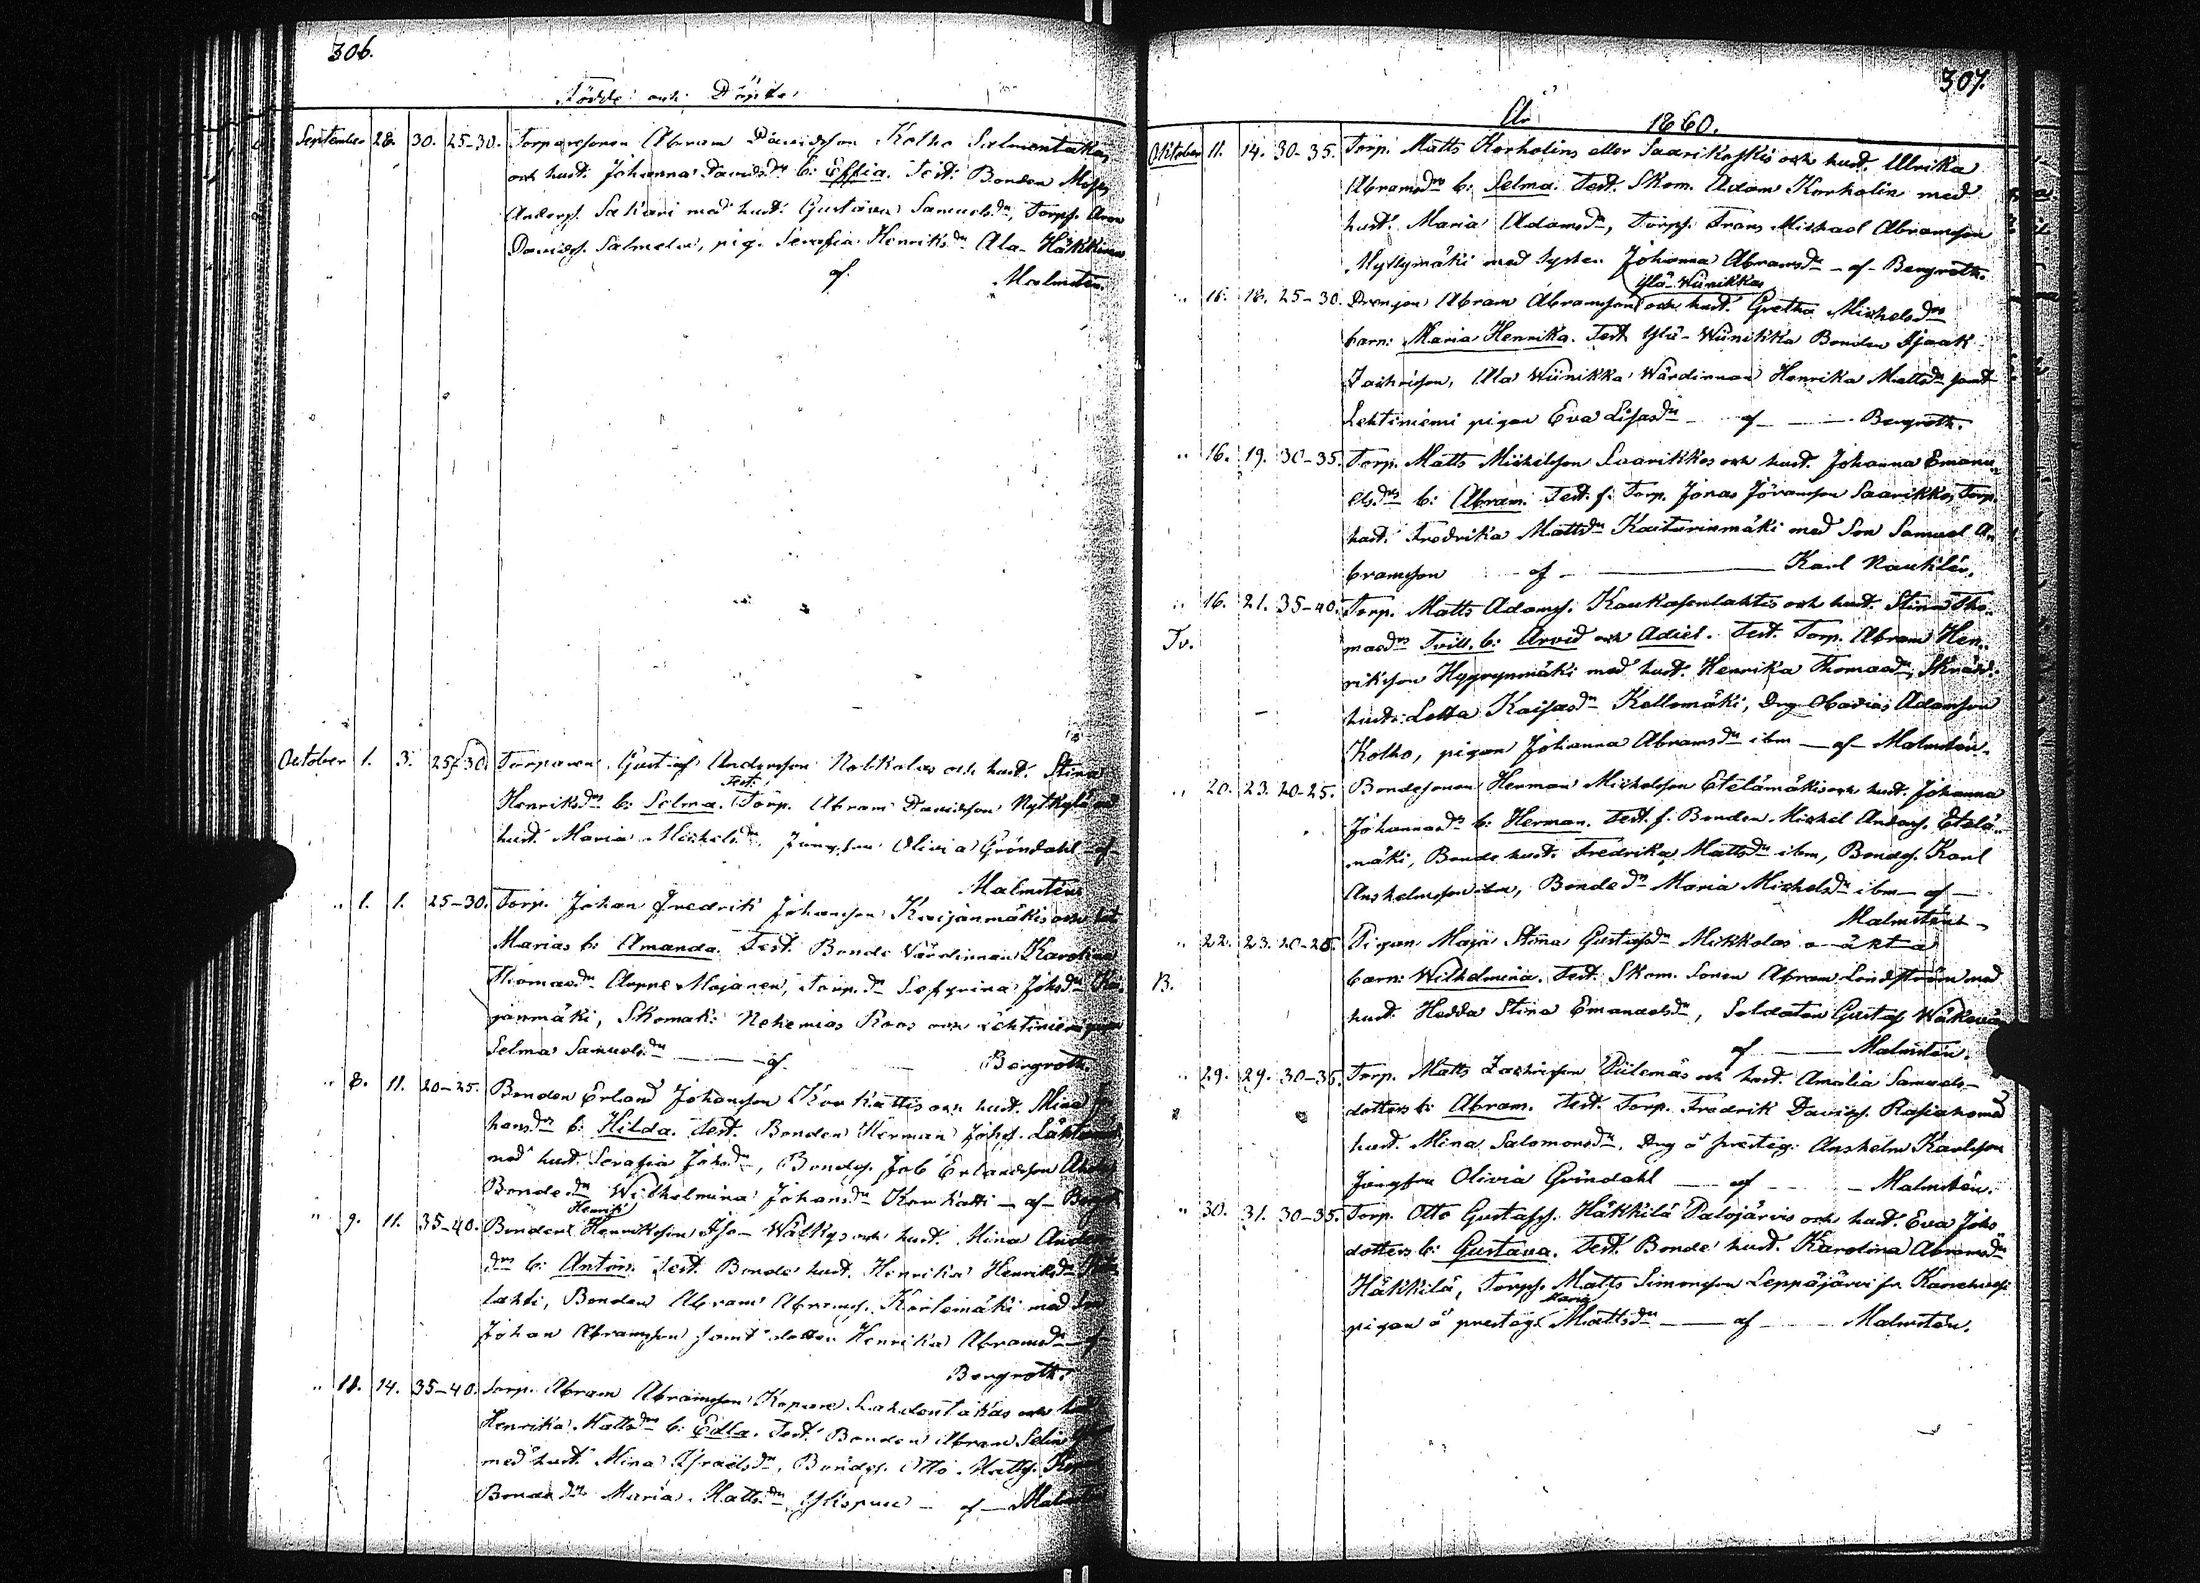 306.
Födde och Döpte
September 28. 30. 25-30. Torparesonen Abram Davidsson Kolho Salmentakas
och hust. Johanna Davidsdrs b: Effia. Test: Bonden Moses
Andersp. Sakari med hust. Gustava Samuelsdr, Torps. Aron
Davids. Salmela, pig. Serafia Henriksdr Ala-Häkkinen
af Malmstén.
October 1. 3. 25-30. Torparen Gustaf Andersson Kolkalas och hust. Stina
Henriksdrs b: Selma. Test: Torp. Abram Davidsson Nytkylä med
hust. Maria Michelsdr, Jungfru Olivia Gröndahl af
Malmstén
" 1. 1. 25-30. Torp. Johan Fredrik Johansson Kaijanmäkis och hust.
Marias b: Amanda. Test. Bonde Värdinnan Karolina
Thomasdr Aoppe Majanen, Torp. dr Johsdr
janmäki, Skomak: Nehemias Roos och Lehtiniemi pigan
Selma Samuelsdr — af Bergroth.
" 8. 11. 20-25. Bonden Erland Johansson Koukattis och hust. Mina Jo
hansdrs b: Hilda. Test. Bonden Herman Johs.
med hust. Serafia Johsdr, Bondes. Job Erlandsson
Bonde dr Wilhelmina Johansdr Koukatti — af
Henrik
" 9. 11. 35-40. Bonden Henriksson Iso-Wälkys och hust. Mina
drs b: Anton. Test. Bonde hust. Henrika Henriksdr
lahti, Bonden Abram Abramss. Kortemäki med son
Johan Abramsson samt dotter Henrika Abramsdr — af
Bergroth.
" 11. 14. 35-40. Torp. Abram Abramsson Kopare Lahdentakas och
Henrika Mattsdrs b: Edla. Test. Bonden Abram Selin
med hust. Mina Israelsdr, Bondes. Otto Matts.
Bonde dr Maria Mattsdr Ylispuu — af — Malmstén
307.
År 1860.
Oktober 11. 14. 30-35. Torp. Matts Korholins eller Saarikoskis och hust. Ulrika
Abramsdrs b: Selma. Test. Skom. Adam Korholin med
hust. Maria Adamsdr, Torps. Frans Michael Abramsson
Myllymäki med syster Johanna Abramsdr — af — Bergroth.
Ylä-Wiinikkas
" 15. 18. 25-30. Drengen Abram Abramsson och hust. Gretha Michelsdrs
barn: Maria Henrika. Test Ylä-Wiinikka Bonden Isaak
Zachrisson, Ala Wiinikka Wärdinnan Henrika Mattsdr samt
Lehtiniemi pigan Eva Lisasdr — af — Bergroth.
" 16. 19. 30-35. Torp. Matts Michelsson Saarikkos och hust. Johanna Emanu
elsdrs b: Abram. Test. f. Torp. Jonas Jöransson Saarikko, Torp.
hust. Fredrika Mattsdr Kasturinmäki med Son Samuel A-
bramsson — af — Karl Nauklér.
" 16. 21. 35-40. Torp. Matts Adamss. Kaukasenlahtis och hust. Stina Tho-
Tv. masdrs Tvill. b: Arvid och Adiel. Test. Torp. Abram Hen-
riksson Hyyrynmäki med hust. Henrika Thomasdr, Skrädd.
hust: Lotta Kaisasdr Kellomäki, Drg Obadias Adamsson
Kolho, pigan Johanna Abramsdr ibm — af — Malmstén.
" 20. 23. 20-25. Bondesonen Herman Michelsson Etelämäkis och hust. Johanna
Johannasdrs b: Herman. Test. f. Bonden Michel Anders. Etelä-
mäki, Bonde hust. Fredrika Mattsdr ibm, Bondes. Karl
Anshelmsson ibm, Bonde dr Maria Michelsdr ibm — af —
Malmstén
" 22. 23. 20-25. Pigan Maja Stina Gustafsdr Mikkolas o-äkta
B. barn: Wilhelmina. Test. Skom. Sonen Abram Lindström med
hust. Hedda Stina Emanuelsdr, Soldaten Gustaf Wäkevä
af — Malmstén.
" 29. 29. 30-35. Torp. Matts Zachrisson Piilemäs och hust. Amalia Samuels-
dotters b: Abram. Test. Torp. Fredrik Davids. Rasiaho med
hust. Mina Salomonsdr, Drg å prestg: Anshelm Karlsson
Jungfru Olivia Gröndahl — af — Malmstén.
" 30. 31. 30-35. Torp. Otto Gustafss. Häkkilä Palojärvis och hust. Eva Johs
dotters b: Gustava. Test. Bonde hust. Karolina Abramsdr
Häkkilä, Torps. Matts Simonsson Leppäjärvi fr.
Maria
pigan å prestg: Mattsdr — af — Malmstén.